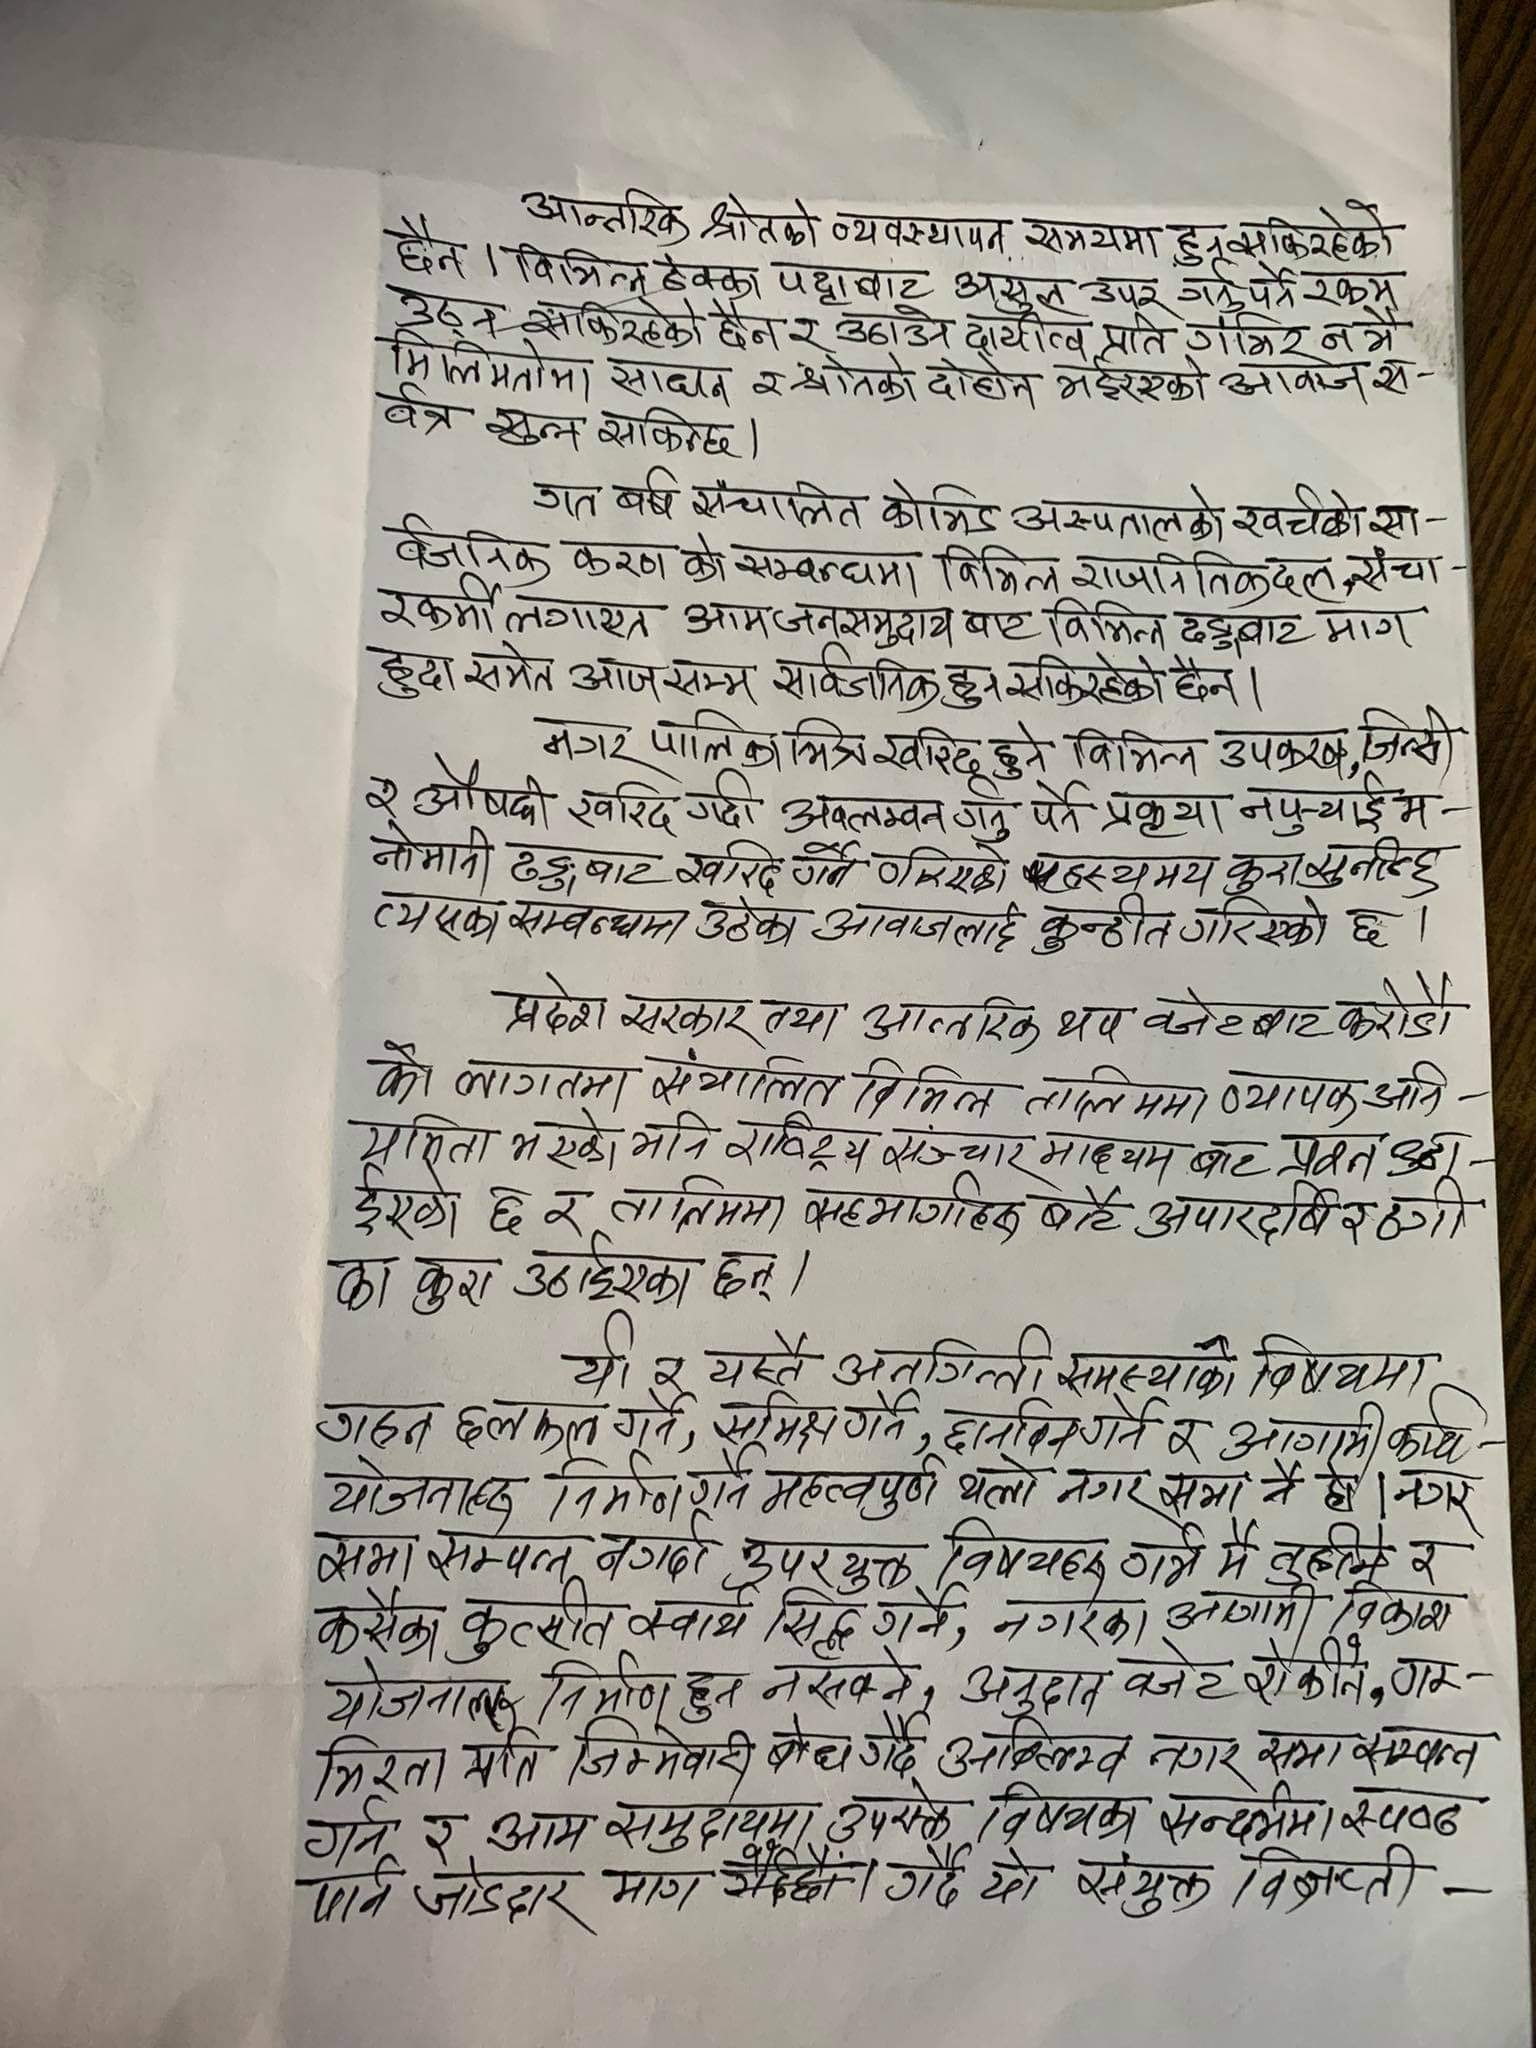 आन्तरिक श्रोतको व्यवस्थापन समयमा हुन सकिरहेको
छैन । विभिन्न ठेक्का पट्टाबाट असुल उपर गर्नु पर्ने रकम
उठ्न सकिरहेको छैन र उठाउने दायीत्व प्रति गंभिर न भै
मिलिमतोमा साधन र श्रोतको दोहोन भईरएको आवाज स-
र्बत्र सुन्न सकिन्छ ।
गत बर्ष संचालित कोभिड अस्पतालको खर्चको सा-
र्बजनिक करण को सम्बन्धमा विभिन्न राजनितिक दल, संचा-
रकर्मी लगाएत आम जनसमुदाय बाट विभिन्न ढङ्गबाट माग
हुदा समेत आज सम्म सार्वजनिक हुन सकिरहेको छैन ।
नगर पालिका भित्र खरिद हुने विभिन्न उपकरण, जिन्सी
र औषधी खरिद गर्दा अवलम्वन गर्नु पर्ने प्रकृया नपुर्‍याई म-
नोमानी ढङ्गबाट खरिद गर्ने गरिएको रहस्यमय कुरा सुनीन्छ
त्यसका सम्बन्धमा उठेका आवाजलाई कुन्ठीत गरिएको छ ।
प्रदेश सरकार तथा आन्तरिक थप वजेटबाट करोडौ
को लागतमा संचालित विभिन्न तालिममा व्यापक अनि-
यमिता भएको भनि राष्ट्रिय सञ्चार माध्यम बाट प्रश्न उठा-
ईएको छ र तालिममा सहभागीहरु बाटै अपारदर्शि र ठगी
का कुरा उठाईएका छन् ।
यी र यस्तै अनगिन्ती समस्याको विषयमा
गहन छलफल गर्ने, समिक्षा गर्ने, छानविन गर्ने र आगामी कार्य-
योजनाहरु निर्माण गर्ने महत्वपुर्ण थलो नगर सभा नै हो । नगर
सभा सम्पन्न नगर्दा उपरयुक्त विषयहरु गर्भ मै तुहीने र
कसैका कुत्सीत स्वार्थ सिद्ध गर्ने, नगरका आगामी विकाश
योजनाहरु निर्माण हुन नसक्ने, अनुदान वजेट रोकीने, गम-
भिरता प्रति जिम्मेवारी बोध गर्दै अविलम्व नगर सभा सम्पन्न
गर्न र आम समुदायमा उपरोक्त विषयका सन्दर्भमा स्पष्ठ
पार्न जोडदार माग गर्दछौं । गर्दै यो संयुक्त विज्ञप्ती -